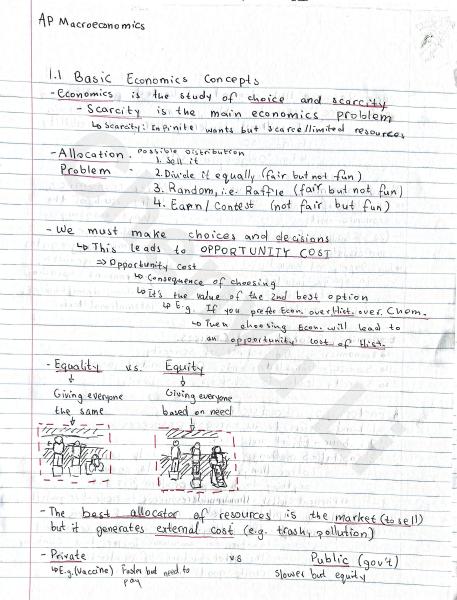 AP Macroeconomics
1.1 Basic Economics Concepts
- Economics is the study of choice and scarcity
- Scarcity is the main economics problem
↳ Scarcity: Infinite wants but scarce/limited resources
- Allocation . Possible Distribution
1. Sell it
Problem - 2. Divide it equally (fair but not fun)
3. Random, i.e. Raffle (fair but not fun)
4. Earn/Contest (not fair but fun)
- We must make choices and decisions
↳ This leads to OPPORTUNITY COST
⇒ Opportunity cost
↳ Consequence of choosing
↳ It's the value of the 2nd best option
↳ E.g. If you prefer Econ. over Hist. over. Chem.
↳ Then choosing Econ. will lead to
an opportunity cost of Hist.
- Equality v.s. Equity
↓ ↓
Giving everyone Giving everyone
the same based on need
↓ ↓
- The best allocator of resources is the market (to sell)
but it generates external cost (e.g. trash, pollution)
- Private v.s Public (gov't)
↳ E.g. (Vaccine) Faster but need to slower but equity
pay